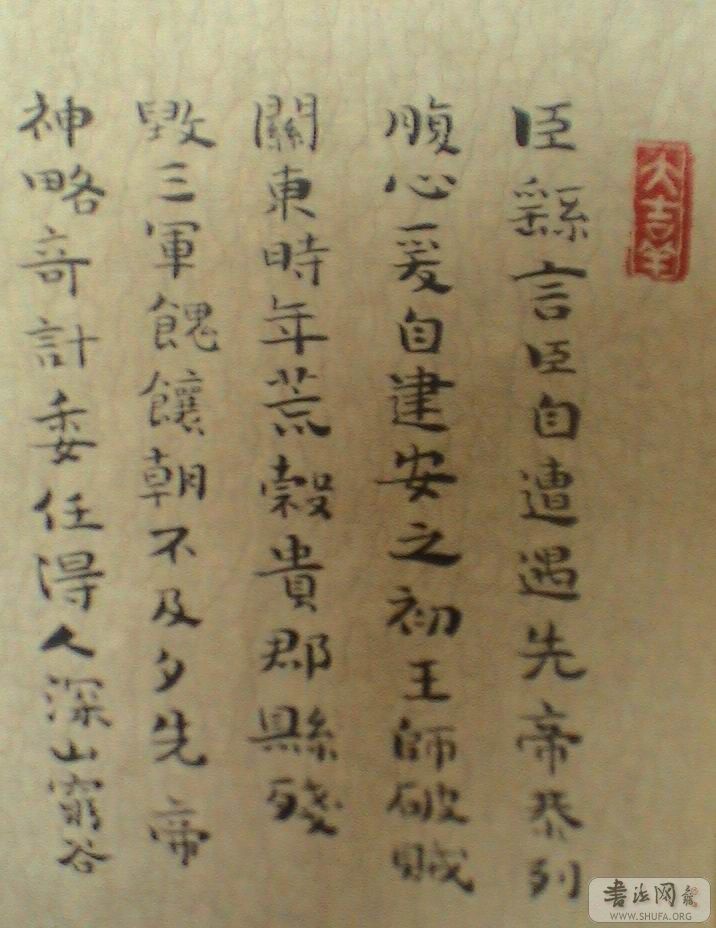 大吉羊
臣繇言臣自遭遇先帝忝列
腹心爰自建安之初王師破賊
關東時年荒穀貴郡縣殘
毀三軍餽饟朝不及夕先帝
神略奇計委任得人深山窮谷
書法网
WWW.SHUFA.ORG